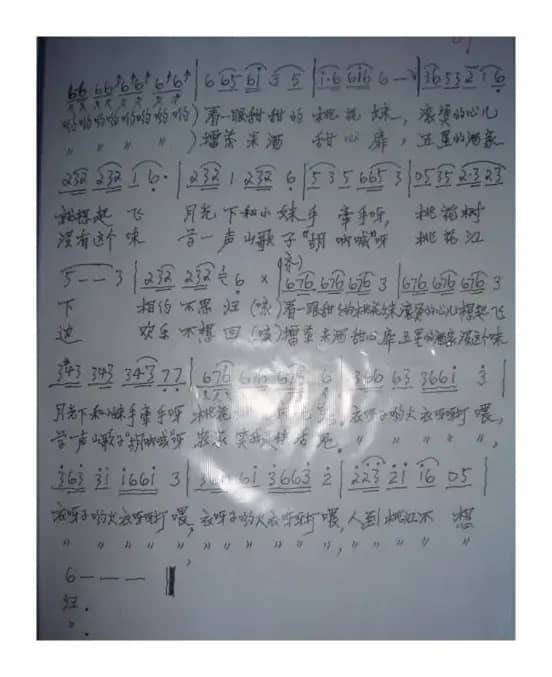 66 66 66 66 6 6 | 6 65 61 3 5 | 1·6 616 6 — | 3653 2 1 6
哟哟哟哟哟哟哟哟)看一眼甜甜的 桃花妹, 滚烫的心儿
〃 〃 〃 〃 )擂茶米酒 甜心扉, 五星的酒家
232 232 1 6· | 232 1 232 6 | 5 3 5 665 3 | 05 35 2·3 23
就想起 飞 月光下和小妹手 牵手呀, 桃花树
没有这个 味 学一声山歌子"胡呐喊"呀 桃花江
5 — — 3 | 232 232 6 × | 676 676 676 3 | 676 676 676 3
下 相约不思 归(咳)看一眼甜甜的桃花妹滚烫的心儿想起飞
边 欢乐不想 回(咳)擂茶米酒甜心扉五星的酒家没这个味
343 343 343 77 | 676 616 676 6 | 366 63 3661 3
月光下和小妹手牵手呀 桃花 衣呀子哟火衣呀呀打 喂,
学一声山歌子"胡呐喊"呀 〃 〃 〃 〃
363 31 1661 3 | 36 61 3663 2 | 223 21 16 05
衣呀子哟火衣呀呀打 喂, 衣呀子哟火衣呀呀打 喂, 人到桃江不 想
〃 〃 〃 〃 〃, 〃 〃 〃 〃 〃, 〃 〃 〃 〃 〃
6 — — —
归.
〃.